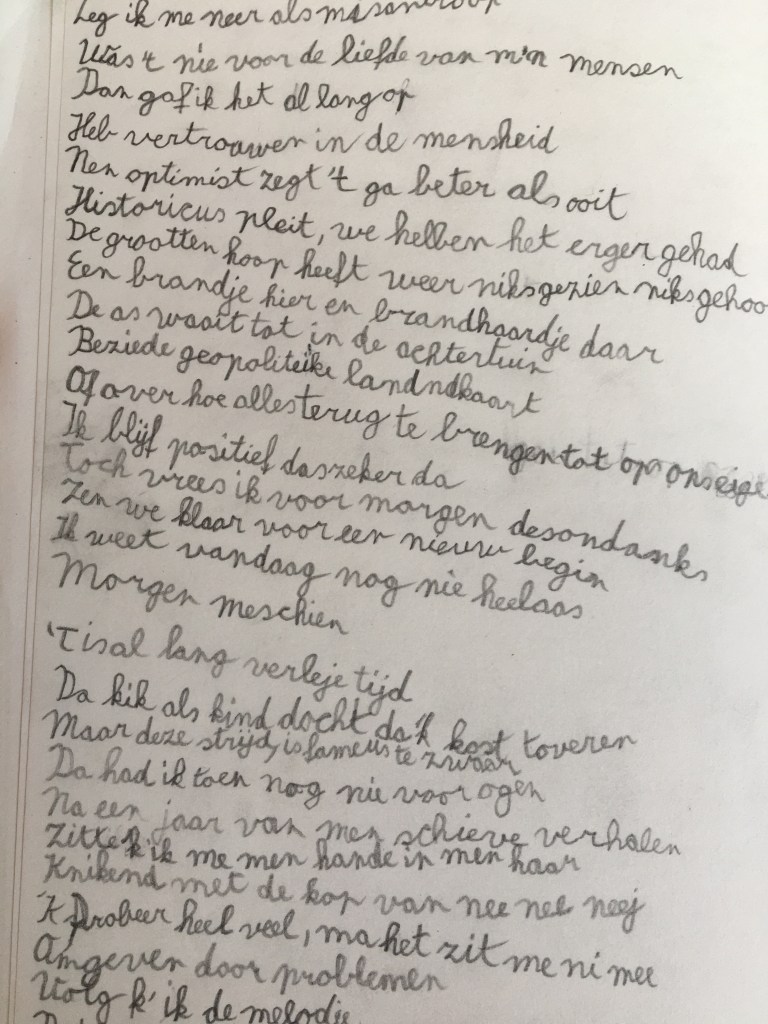 Leg ik me neer als misantroop
Was 't nie voor de liefde van m'n mensen
Dan gaf ik het al lang op
Heb vertrouwen in de mensheid
Nen optimist zegt 't ga beter als ooit
Historicus pleit, we hebben het erger gehad
De grootten hoop heeft weer niks gezien niks gehoo
Een brandje hier en brandhaardje daar
De as waait tot in de achtertuin
Bezie de geopolitieke landndkaart
Of over hoe alles terug te brengen tot op ons eige
Ik blijf positief daszeker da
Toch vrees ik voor morgen desondanks
Zen we klaar voor een nieuw begin
Ik weet vandaag nog nie heelaas
Morgen meschien
'Tis al lang verleje tijd
Da kik als kind docht da'k kost toveren
Maar deze strijd, is fameus te zwaar
Da had ik toen nog nie voor ogen
Na een jaar van men schieve verhalen
Zitte k ik me men hande in men haar
Knikend met de kop van nee nee neej
'K Probeer heel veel, ma het zit me ni mee
Omgeven door problemen
Volg k' ik de melodie